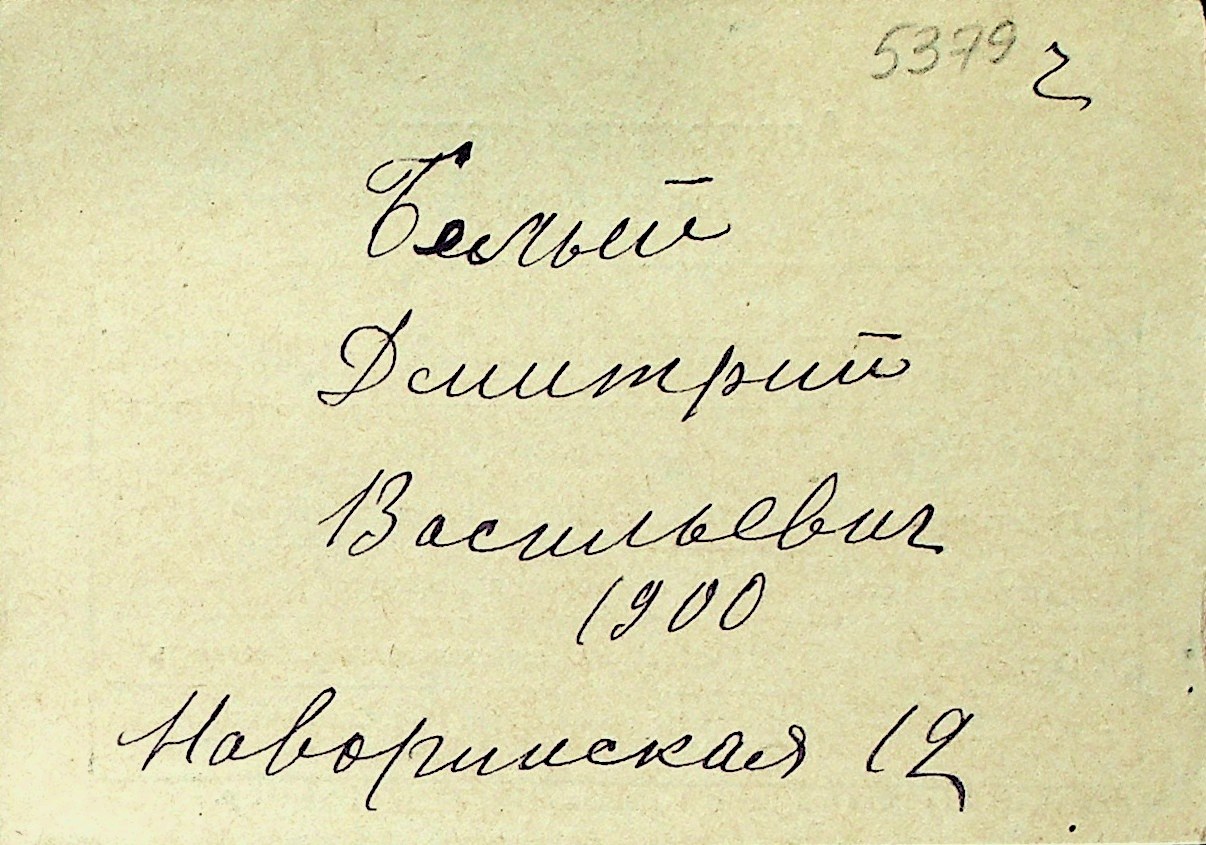 5379 ч
Белый
Дмитрий
Васильевич
1900
12